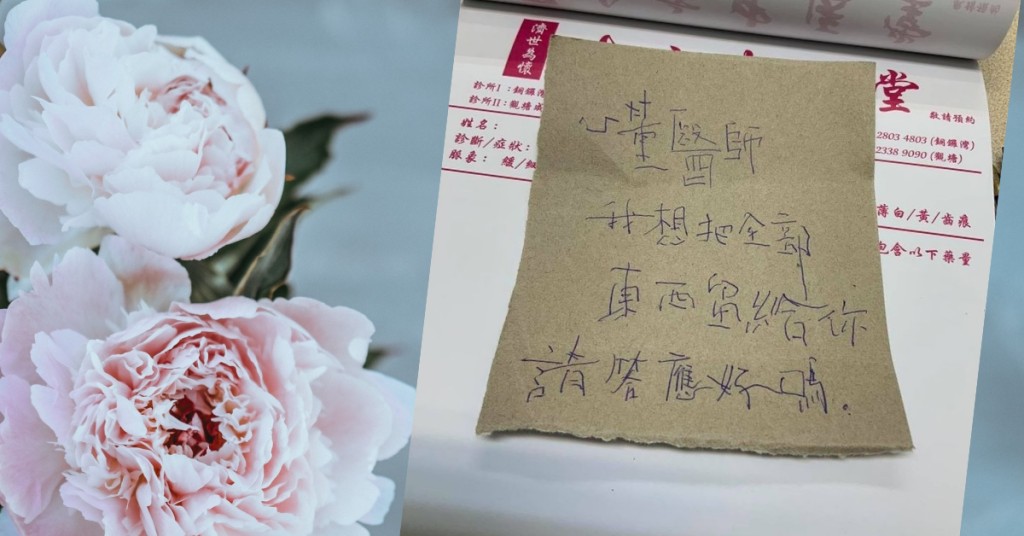 濟世為懷
堂
敬請預約
診所I：銅鑼灣
2803 4803 (銅鑼灣)
診所II：觀塘成
2338 9090 (觀塘)
姓名：
診斷/症狀：
脈象： 緩/
薄白/黃/齒痕
包含以下藥量
心 醫師
我想把全部
東西留給你
請答應好嗎.